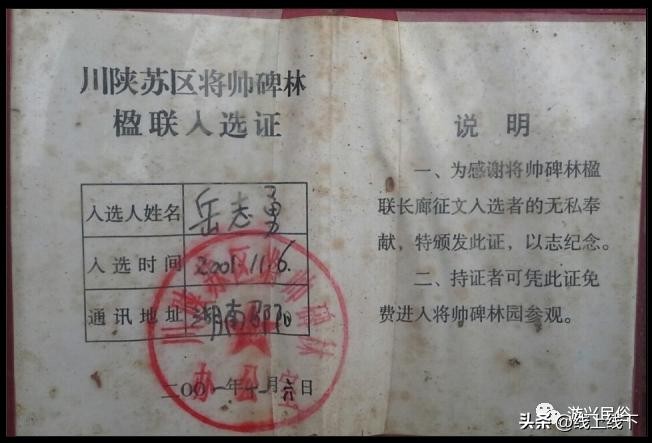 川陕苏区将帅碑林
楹联入选证
入选人姓名 岳志勇
入选时间 2001.11.6.
通讯地址 湖南邵阳
二〇〇一年十一月六日
川陕苏区将帅碑林
办公室
说明
一、为感谢将帅碑林楹
联长廊征文入选者的无私奉
献，特颁发此证，以志纪念。
二、持证者可凭此证免
费进入将帅碑林园参观。
游兴民俗
头条@线上线下